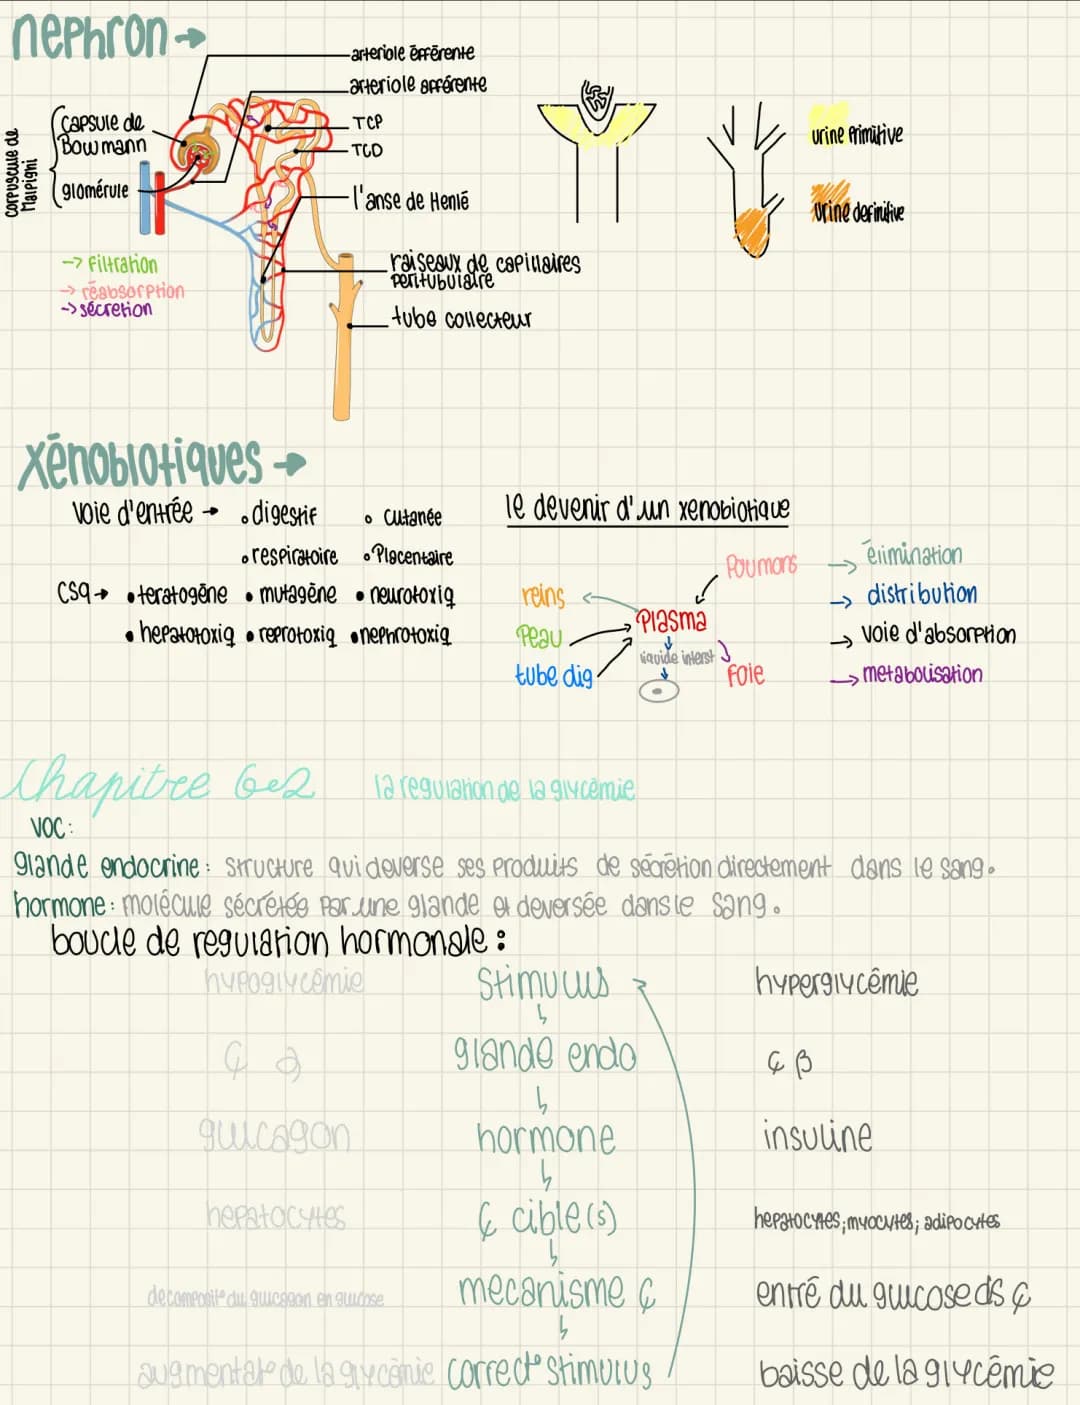 nephron →
arteriole éfférente
arteriole afférente
TCP
TCD
l'anse de Henlé
raiseaux de capillaires
peritubulaire
tube collecteur
corpuscule de
Malpigni
capsule de
Bowmann
glomérule
-> filtration
-> réabsorption
-> sécretion
urine primitive
urine definitive
xénobiotiques →
voie d'entrée → • digestif • cutanée
• respiratoire • Placentaire
csq → • teratogène • mutagène • neurotoxiq
• hepatotoxiq • reprotoxiq • nephrotoxiq
le devenir d'un xenobiotique
Poumons
reins
Plasma
Peau
liquide interst
tube dig
foie
→ élimination
→ distribution
→ voie d'absorption
→ metabolisation
Chapitre 6e2 la regulation de la glycémie
voc:
glande endocrine : structure qui deverse ses produits de sécrétion directement dans le sang.
hormone : molécule sécrétée par une glande et deversée dans le sang.
boucle de regulation hormonale :
hypoglycémie stimulus hyperglycémie
¢ α glande endo ¢ β
glucagon hormone insuline
hepatocytes ¢ cible(s) hepatocytes; myocytes; adipocytes
decomposit° du glucagon en glucose mecanisme ¢ entré du glucose ds ¢
augmentat° de la glycémie correct° stimulus baisse de la glycémie